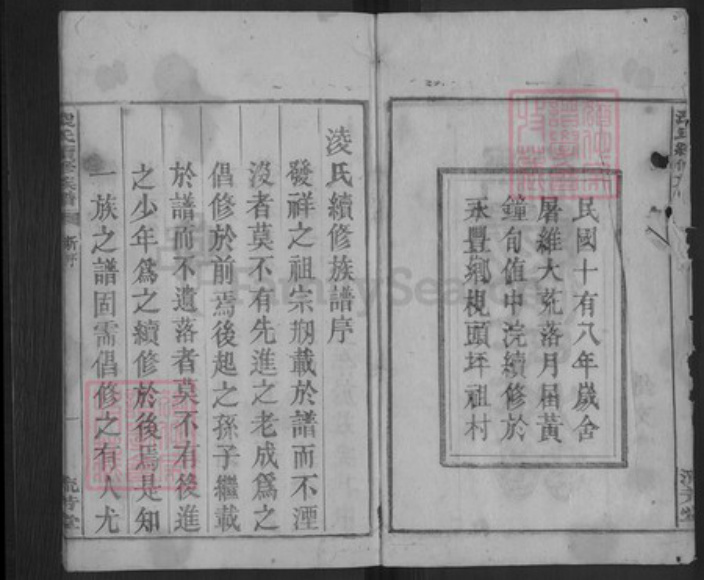 民國十有八年歲舍
屠維大荒落月届黃
鐘旬值中浣續修於
永豐鄉梘頭坪祖村
淩氏續修族譜序
發祥之祖宗刱載於譜而不湮
沒者莫不有先進之老成爲之
倡修於前焉後起之孫子繼載
於譜而不遺落者莫不有後進
之少年爲之續修於後焉是知
一族之譜固需倡修之有人尤
新序
一
FamilySearch